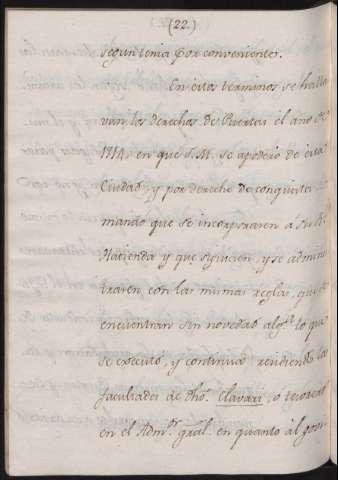 (22.)
segun tenia por conveniente.
En estos terminos se halla
van los derechos de Puertas el año de
1714, en que S. M. se apoderó de esta
Ciudad, y por derecho de conquista
mandó que se incorporaren a su Rl.
Hacienda y que siguiesen, y se adminis
traren con las mismas reglas, que se
encuentran sin novedad algª. lo que
se executó, y continua rendiendo las
facultades de dho. Clavari, ó tesorero
en el Admõr. gräl. en quanto al govi